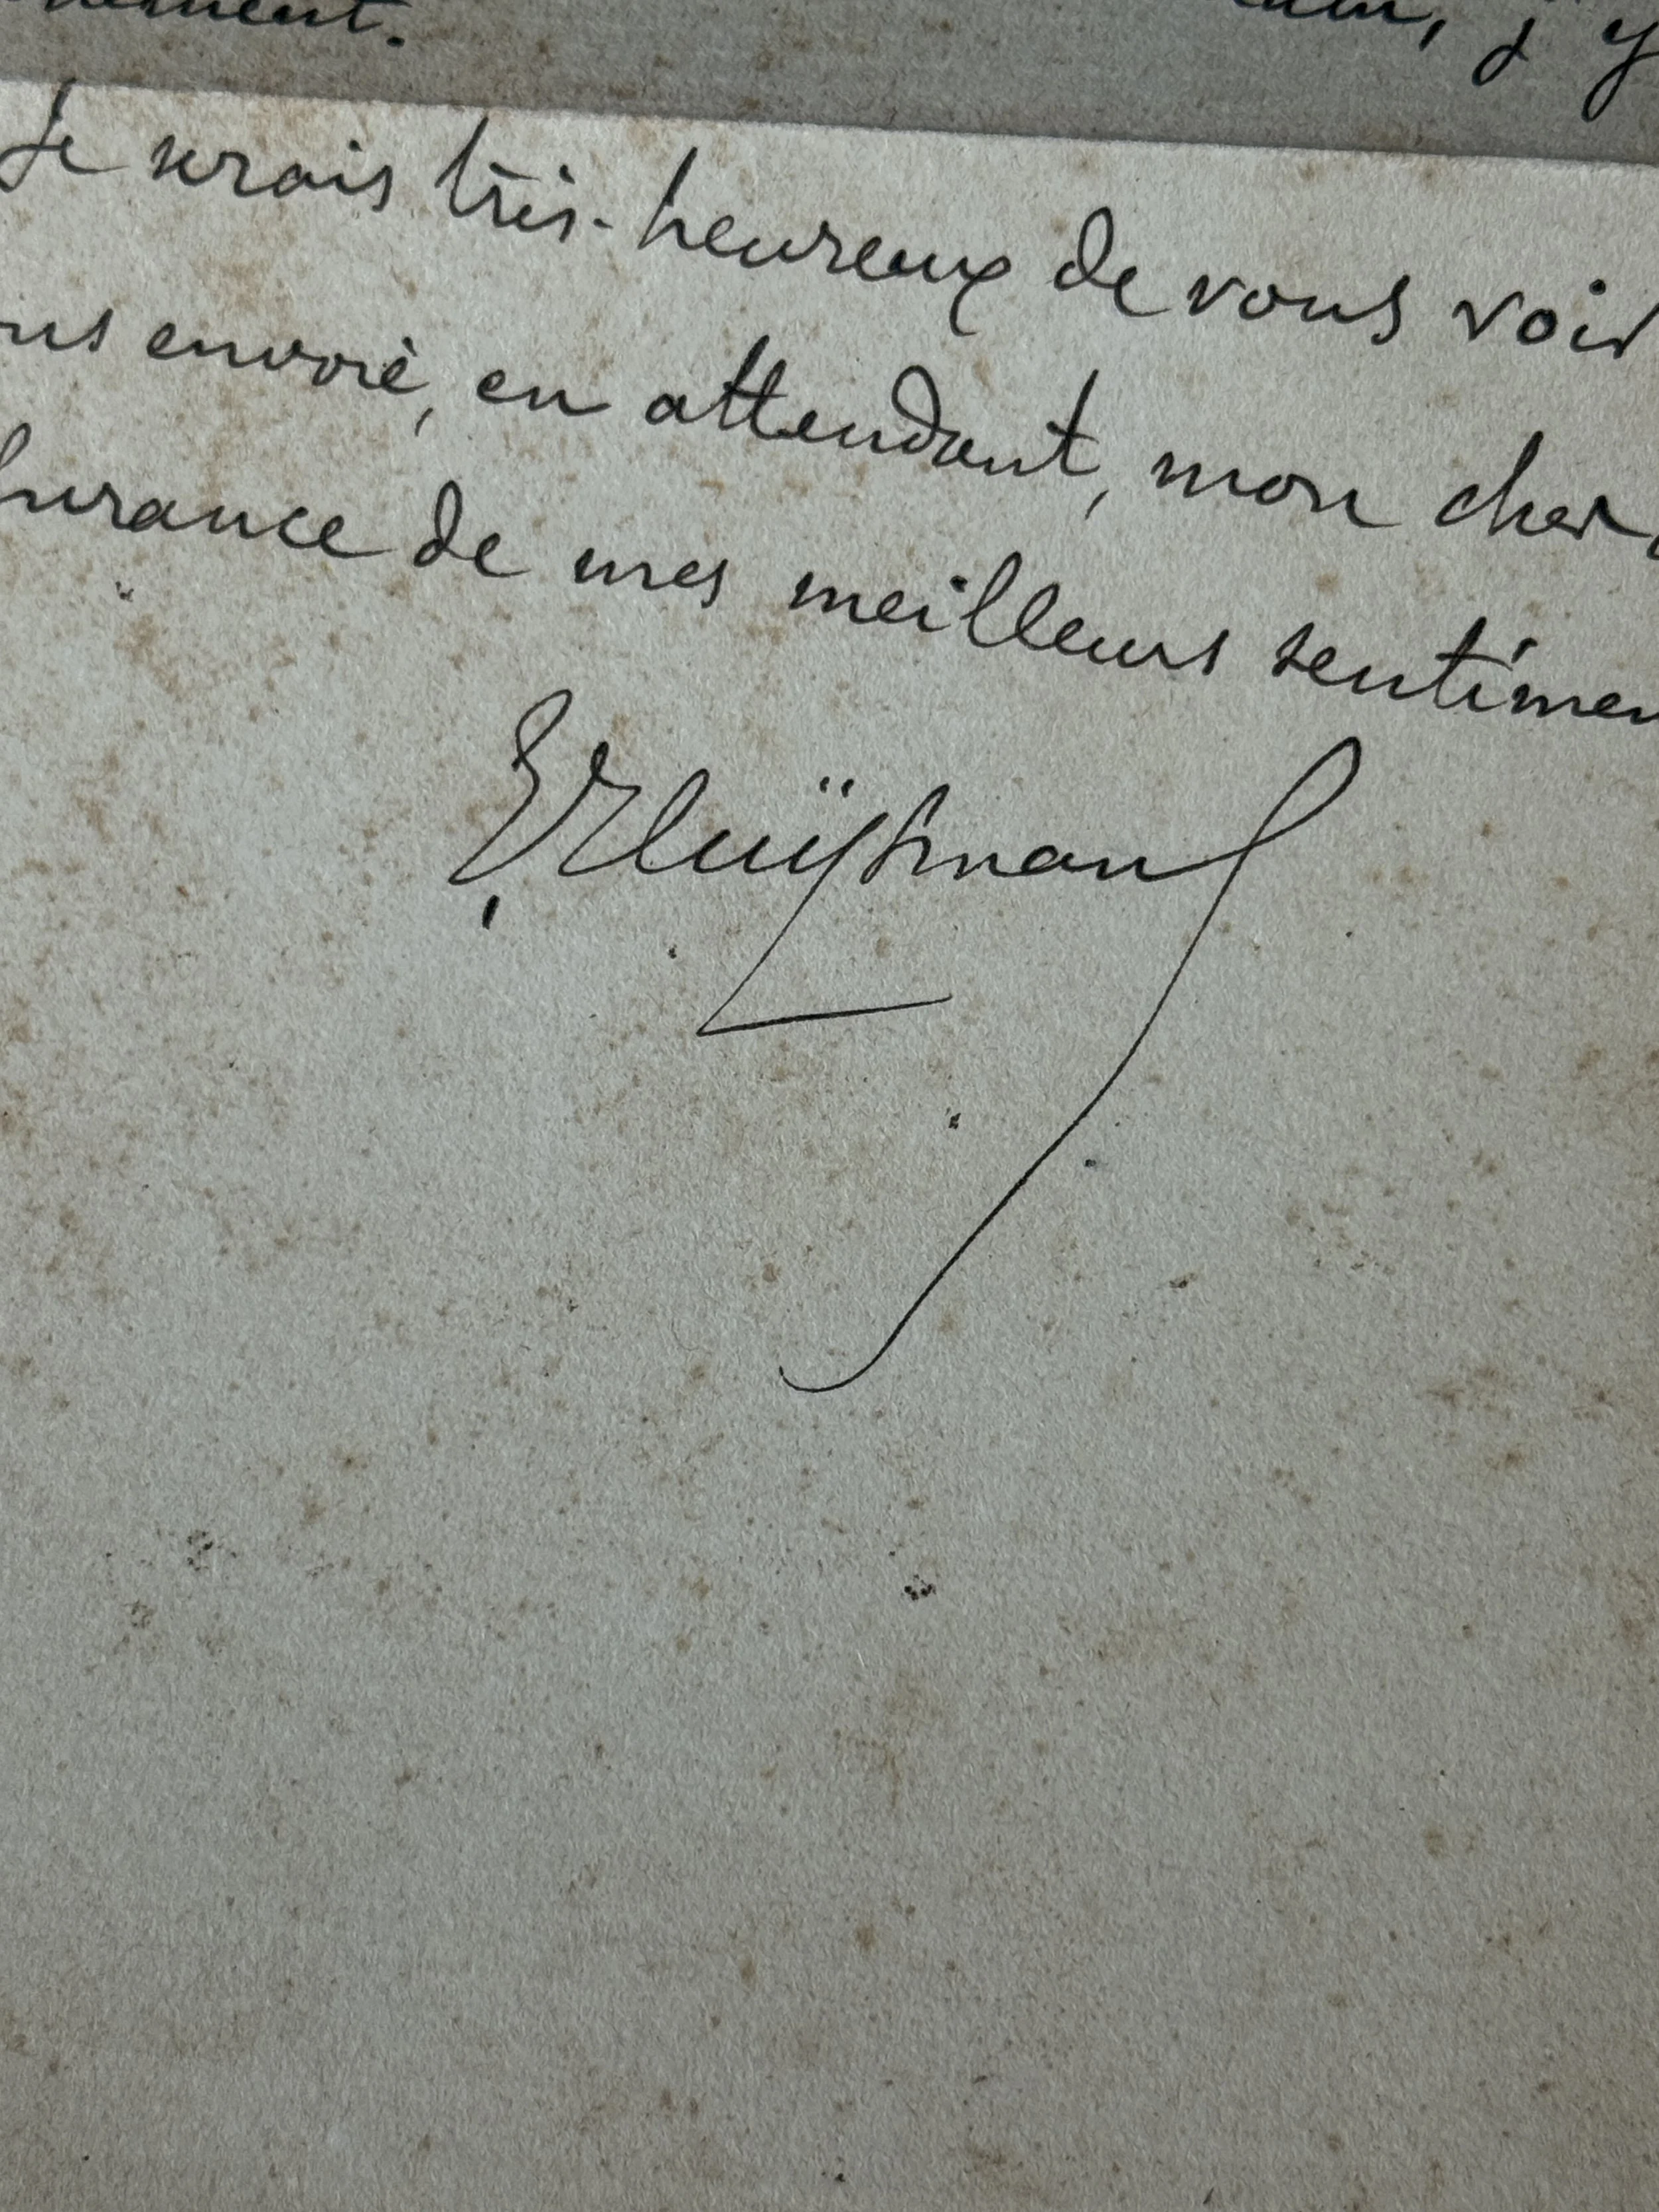 j'y
Je serais très-heureux de vous voir
envoie, en attendant, mon cher
de mes meilleurs sentimen
Huÿsmans